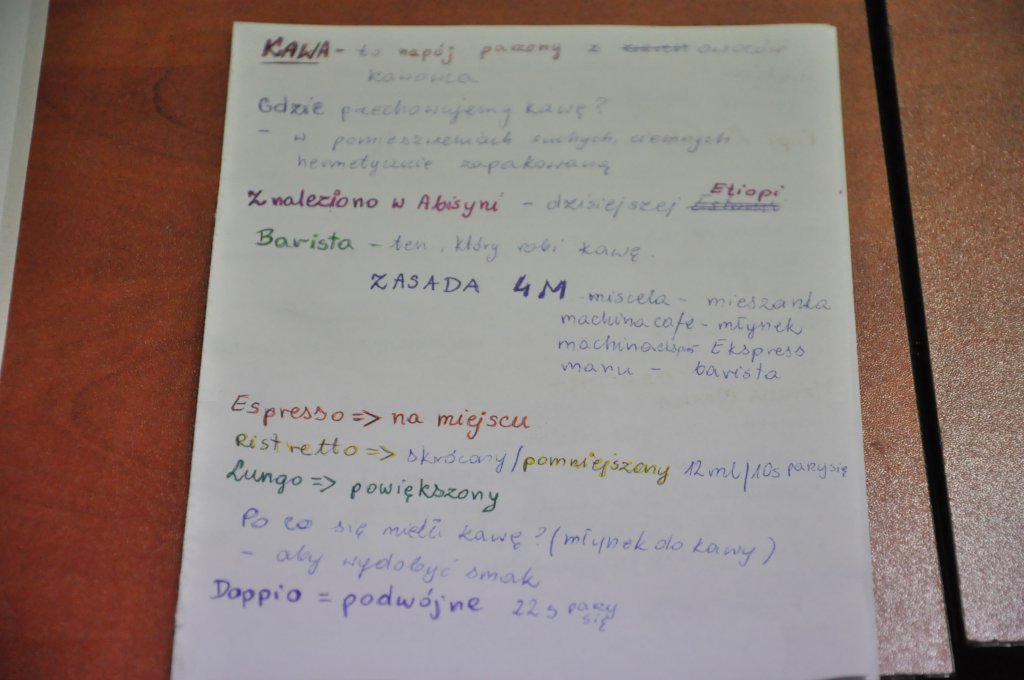 KAWA - to napój parzony z owoców
kawowca
Gdzie przechowujemy kawę?
- w pomieszczeniach suchych, ciemnych
hermetycznie zapakowaną
Etiopi
Znaleziono w Abisyni - dzisiejszej
Barista - ten, który robi kawę.
ZASADA 4M - miscela - mieszanka
machina cafe - młynek
machina Ekspress
manu - barista
Espresso => na miejscu
Ristretto => skrócony/pomniejszony 12ml/10s parzy się
Lungo => powiększony
Po co się mieli kawę? (młynek do kawy)
- aby wydobyć smak
Doppio = podwójne 22s parzy się